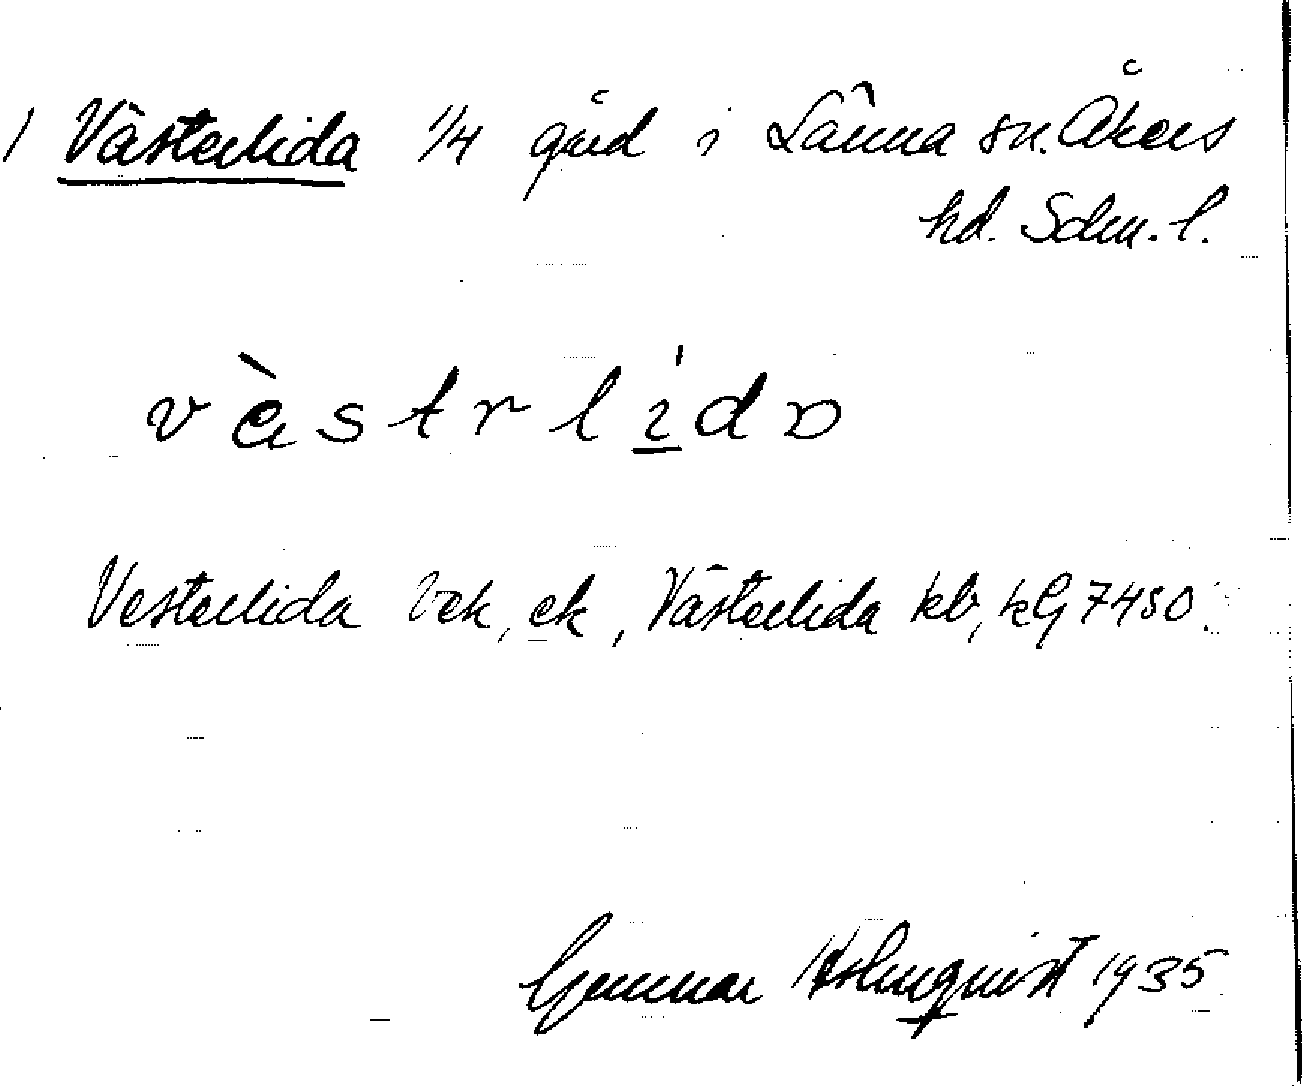 / Västerlida 1/4 gård i Länna sn. Åkers
hd. Sdm. l.
v è s t r l i d ɒ
Vesterlida bek, ek, Västerlida kb, kG 7480.
Gunnar Holmqvist 1935